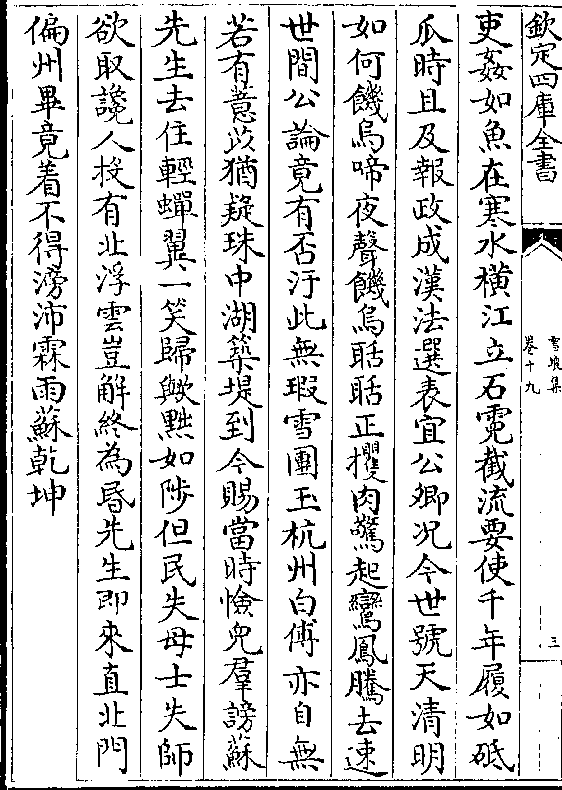 欽定四庫全書
雪坡集
卷十九
三
吏姦如魚在寒水橫江立石霓截流要使千年履如砥
瓜時且及報政成漢法選表宜公卿況今世號天清明
如何饑烏啼夜聲饑烏聒聒正攫肉驚起鸞鳳騰去速
世間公論竟有否汙此無瑕雪團玉杭州白傅亦自無
若有薏苡猶疑珠中湖築堤到今賜當時憸兒羣謗蘇
先生去住輕蟬翼一笑歸歟黜如陟但民失母士失師
欲取讒人投有北浮雲豈解終為昬先生即來直北門
偏州畢竟着不得滂沛霖雨蘇乾坤